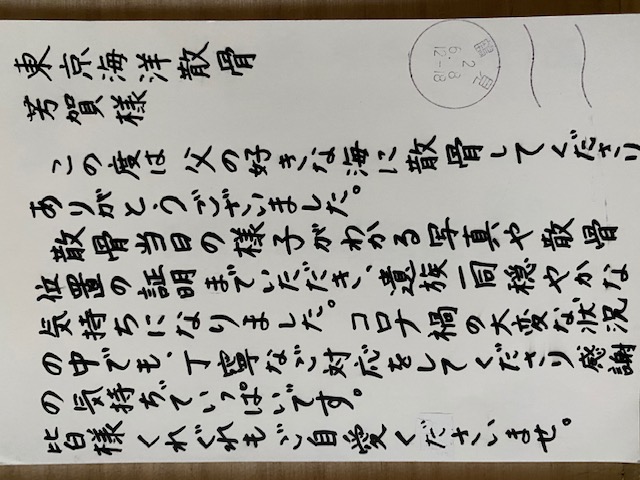 東京海洋散骨
芳賀様
この度は父の好きな海に散骨してくださり
ありがとうございました。
散骨当日の様子がわかる写真や散骨
位置の証明までいただき、遺族一同穏やかな
気持ちになりました。コロナ禍の大変な状況
の中でも、丁寧なご対応をしてくださり感謝
の気持ちでいっぱいです。
皆様くれぐれもご自愛くださいませ。
12-18